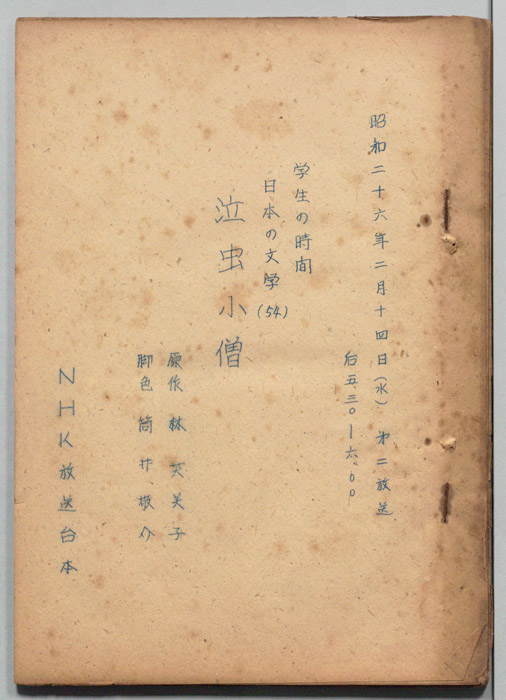 昭和二十六年二月十四日(水) 第二放送
后五.三〇ー六.〇〇
学生の時間
日本の文学(54)
泣虫小僧
原作 林芙美子
脚色 筒井敬介
NHK放送台本